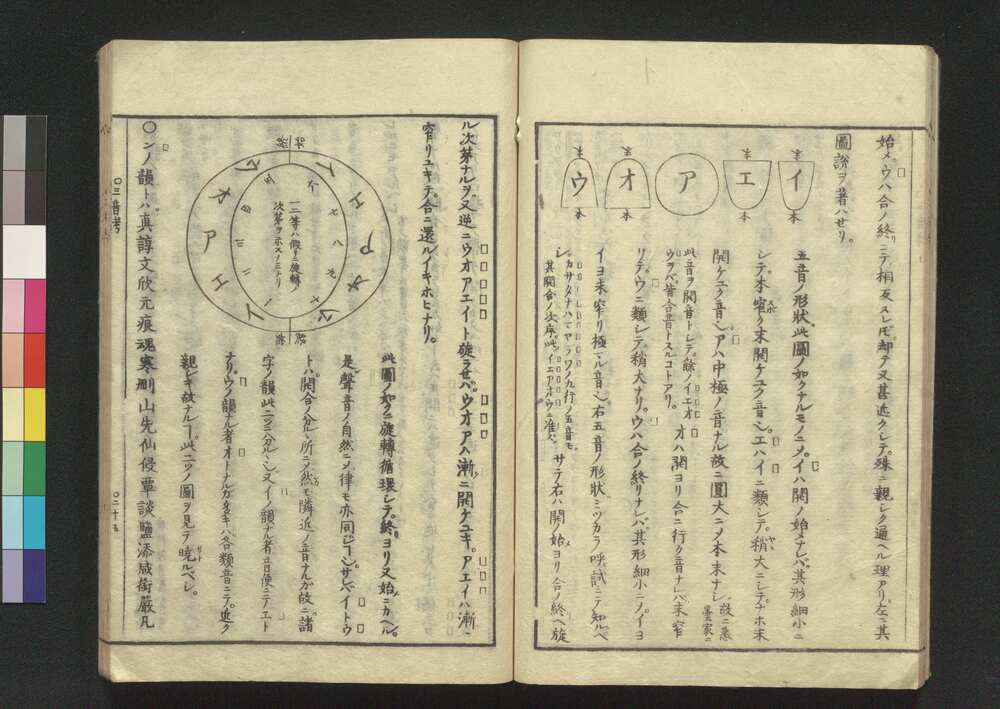 始メ。ウハ合ノ終リニテ相反スレ𪜈却テ又甚近クシテ。殊ニ親シク通ヘル理アリ。左ニ其
圖説ヲ著ハせリ。
末 イ 本
末 エ 本
ア
末 オ 本
末 ウ 本
五音ノ形狀。此圖ノ如クナルモノニ乄。イハ開ノ始メナレバ。其形細小ニ
シテ。本窄ク末開ケユク音也。エハイニ類シテ。稍大ニシテナホ末
開ケユク音也。アハ中極ノ音ナル故ニ圓大ニ乄本末ナシ。
此音ヲ開音トシテ。餘ノイエオ
ウヲバ皆合音トスルコトアリ。
オハ開ヨリ合ニ行ク音ナレバ末窄
リテ。ウニ類シテ。稍大ナリ。ウハ合ノ終リナレバ。其形細小ニ乄。イヨ
イヨ末窄リ極マル音也。右五音ノ形狀ミヅカラ呼試ミテ知ルベ
シ。
カサタナハマヤラワノ九行ノ五音モ。
其開合ノ次序。此イエアオウニ准ズ。
サテ右ハ開ノ始メヨリ合ノ終ヘ旋
ル次第ナルヲ。又逆ニウオアエイト旋ラせバ。ウオアハ漸ニ開ケユキ。アエイハ漸ニ
窄リユキテ。合ニ還ルイキホヒナリ。
一二等ハ假リニ旋轉ノ
次第ヲ示スノミナリ
イ エ ア オ ウ
一 二 三 四 五 六 七 八 九 十
此圖ノ如クニ旋轉循環シテ。終ヨリ又始ニカヘル。
是レ聲音ノ自然ニ乄。律モ亦同ジ。サレバイトウ
トハ。開合ノ分ルヽ所ニ乄然モ隣近ノ音ナルガ故ニ。諸
字ノ韻。此二ツニ分ルヽ也。又イノ韻ナル者。音便ニテエト
ナリ。ウノ韻ナル者オトナルガ多キハ。各類音ニテ。近ク
親シキ故ナルヿ。此二ツノ圖ヲ見テ曉ルベシ。
〇ンノ韻トハ。眞諄文欣元痕魂寒刪山先仙侵覃談鹽添咸銜嚴凡
〇三音考
〇二十五